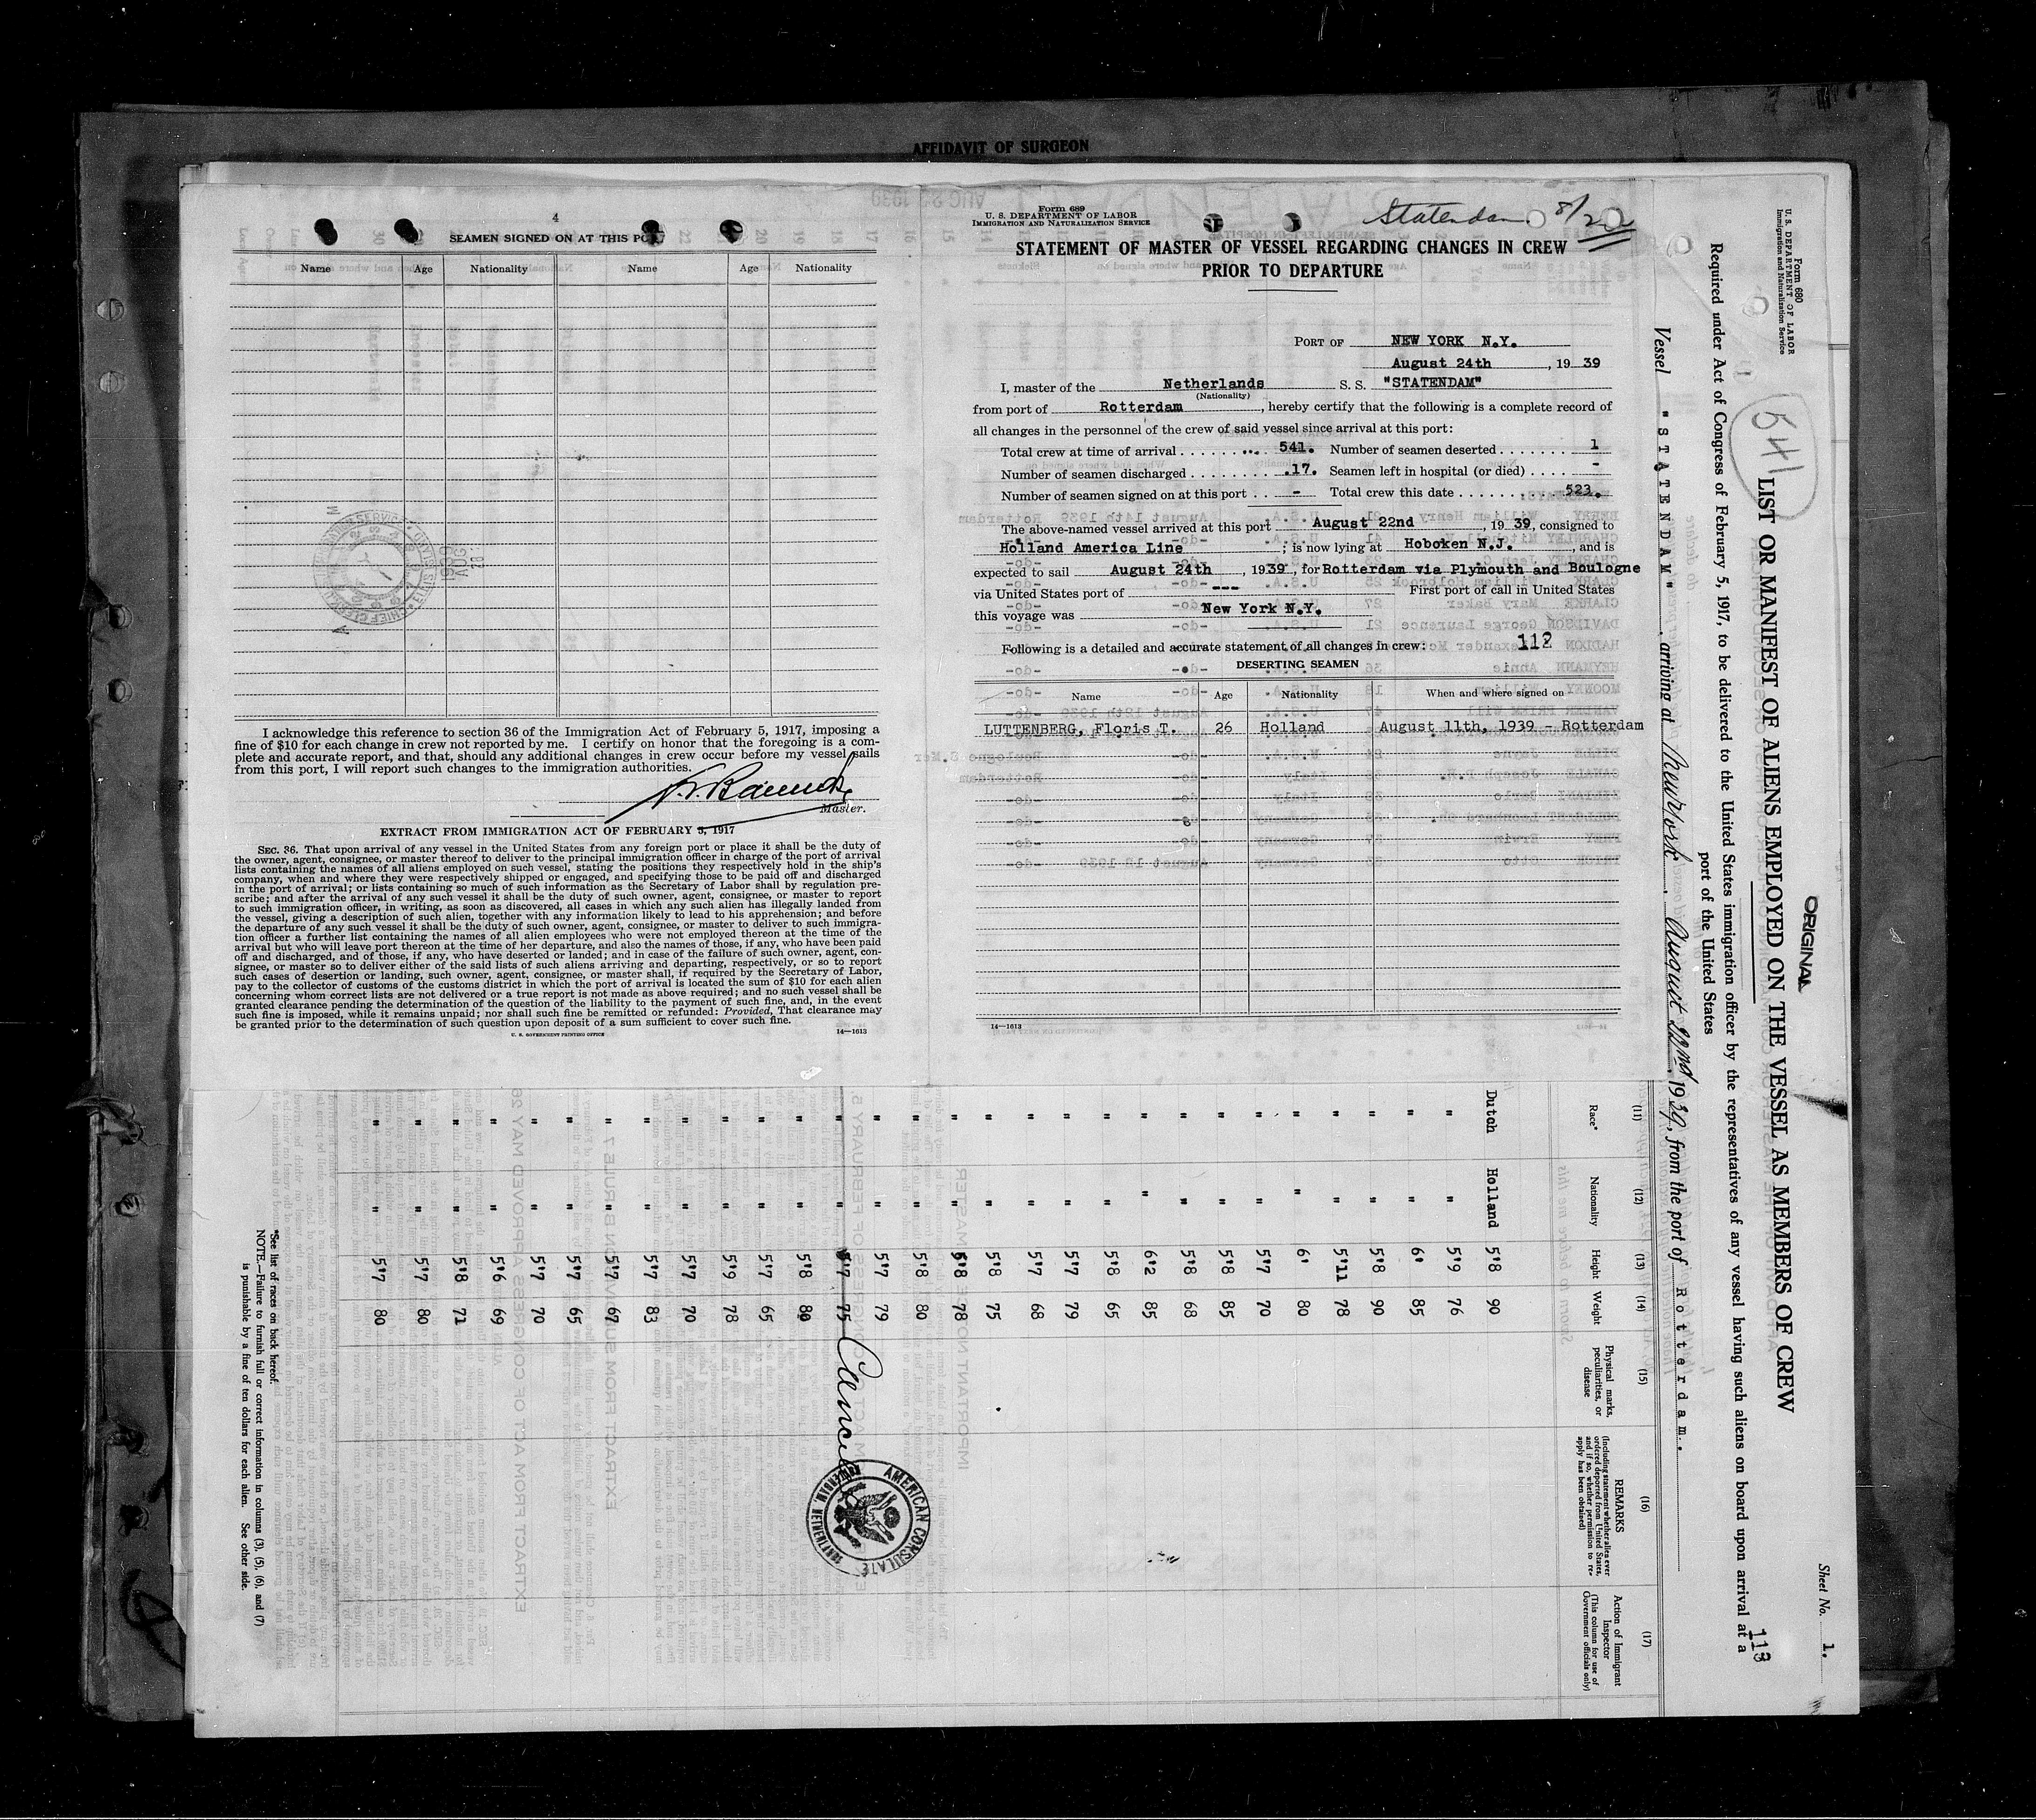 AFFIDAVIT OF SURGEON
4
SEAMEN SIGNED ON AT THIS PORT
Name Age Nationality Name Age Nationality
I acknowledge this reference to section 36 of the Immigration Act of February 5, 1917, imposing a
fine of $10 for each change in crew not reported by me. I certify on honor that the foregoing is a com-
plete and accurate report, and that, should any additional changes in crew occur before my vessel sails
from this port, I will report such changes to the immigration authorities.
Master.
EXTRACT FROM IMMIGRATION ACT OF FEBRUARY 5, 1917
SEC. 36. That upon arrival of any vessel in the United States from any foreign port or place it shall be the duty of
the owner, agent, consignee, or master thereof to deliver to the principal immigration officer in charge of the port of arrival
lists containing the names of all aliens employed on such vessel, stating the positions they respectively hold in the ship's
company, when and where they were respectively shipped or engaged, and specifying those to be paid off and discharged
in the port of arrival; or lists containing so much of such information as the Secretary of Labor shall by regulation pre-
scribe; and after the arrival of any such vessel it shall be the duty of such owner, agent, consignee, or master to report
to such immigration officer, in writing, as soon as discovered, all cases in which any such alien has illegally landed from
the vessel, giving a description of such alien, together with any information likely to lead to his apprehension; and before
the departure of any such vessel it shall be the duty of such owner, agent, consignee, or master to deliver to such immigra-
tion officer a further list containing the names of all alien employees who were not employed thereon at the time of the
arrival but who will leave port thereon at the time of her departure, and also the names of those, if any, who have been paid
off and discharged, and of those, if any, who have deserted or landed; and in case of the failure of such owner, agent, con-
signee, or master so to deliver either of the said lists of such aliens arriving and departing, respectively, or so to report
such cases of desertion or landing, such owner, agent, consignee, or master shall, if required by the Secretary of Labor,
pay to the collector of customs of the customs district in which the port of arrival is located the sum of $10 for each alien
concerning whom correct lists are not delivered or a true report is not made as above required; and no such vessel shall be
granted clearance pending the determination of the question of the liability to the payment of such fine, and, in the event
such fine is imposed, while it remains unpaid; nor shall such fine be remitted or refunded: Provided, That clearance may
be granted prior to the determination of such question upon deposit of a sum sufficient to cover such fine.
U. S. GOVERNMENT PRINTING OFFICE 14—1613
Form 689
U. S. DEPARTMENT OF LABOR
IMMIGRATION AND NATURALIZATION SERVICE
Statendam 8/22
STATEMENT OF MASTER OF VESSEL REGARDING CHANGES IN CREW
PRIOR TO DEPARTURE
PORT OF NEW YORK N.Y.
August 24th, 1939
I, master of the Netherlands S. S. "STATENDAM"
(Nationality)
from port of Rotterdam, hereby certify that the following is a complete record of
all changes in the personnel of the crew of said vessel since arrival at this port:
Total crew at time of arrival . . . . . . . . . . 541. Number of seamen deserted . . . . . . . 1
Number of seamen discharged . . . . . . . . . 17. Seamen left in hospital (or died) . . . . -
Number of seamen signed on at this port . . - Total crew this date . . . . . . . . . . 523.
The above-named vessel arrived at this port August 22nd, 1939, consigned to
Holland America Line; is now lying at Hoboken N.J., and is
expected to sail August 24th, 1939, for Rotterdam via Plymouth and Boulogne
via United States port of --- First port of call in United States
this voyage was New York N.Y.
Following is a detailed and accurate statement of all changes in crew: 112
DESERTING SEAMEN
Name Age Nationality When and where signed on
LUTTENBERG, Floris T. 26 Holland August 11th, 1939 - Rotterdam
14—1613
Form 680
U. S. DEPARTMENT OF LABOR
Immigration and Naturalization Service
ORIGINAL
Sheet No. 1.
541
113
LIST OR MANIFEST OF ALIENS EMPLOYED ON THE VESSEL AS MEMBERS OF CREW
Required under Act of Congress of February 5, 1917, to be delivered to the United States immigration officer by the representatives of any vessel having such aliens on board upon arrival at a
port of the United States
Vessel "STATENDAM", arriving at New York, August 22nd, 1939, from the port of Rotterdam.
(11) (12) (13) (14) (15) (16) (17)
Race* Nationality Height Weight Physical marks, peculiarities, or disease REMARKS (Including statement whether alien ever ordered deported from United States, and if so, whether permission to reapply has been obtained) Action of Immigrant Inspector (This column for use of Government officials only)
Dutch Holland 5'8 90
" " 5'9 76
" " 6' 85
" " 5'8 90
" " 5'11 78
" " 6' 80
" " 5'7 70
" " 5'8 85
" " 5'8 68
" " 6'2 85
" " 5'8 65
" " 5'7 79
" " 5'7 68
" " 5'8 75
" " 5'8 78
" " 5'8 80
" " 5'7 79
" " 5'7 75 Cancel
" " 5'8 80
" " 5'7 65
" " 5'9 78
" " 5'7 70
" " 5'7 83
" " 5'7 67
" " 5'7 65
" " 5'7 70
" " 5'6 69
" " 5'8 71
" " 5'7 80
" " 5'7 80
AMERICAN CONSULATE
ROTTERDAM, NETHERLANDS
*See list of races on back hereof.
NOTE.—Failure to furnish full or correct information in columns (3), (5), (6), and (7)
is punishable by a fine of ten dollars for each alien. See other side.